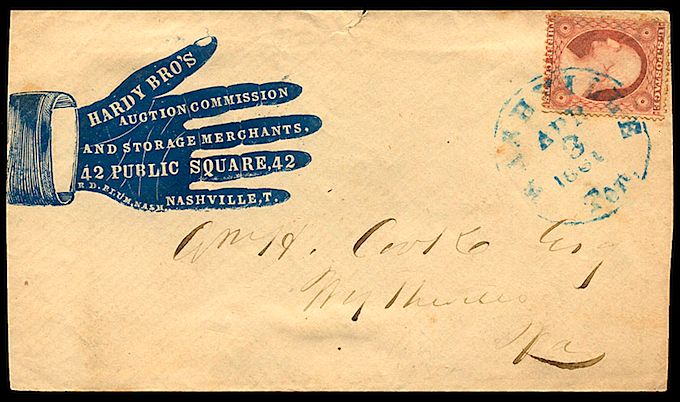 HARDY BRO'S
AUCTION COMMISSION
AND STORAGE MERCHANTS,
42 PUBLIC SQUARE, 42
R. D. BLUM, NASH.
NASHVILLE, T.
U.S. POSTAGE
NASHVILLE
APR
3
1861
Ten.
Wm H. Cooke Esq
Wytheville
Va